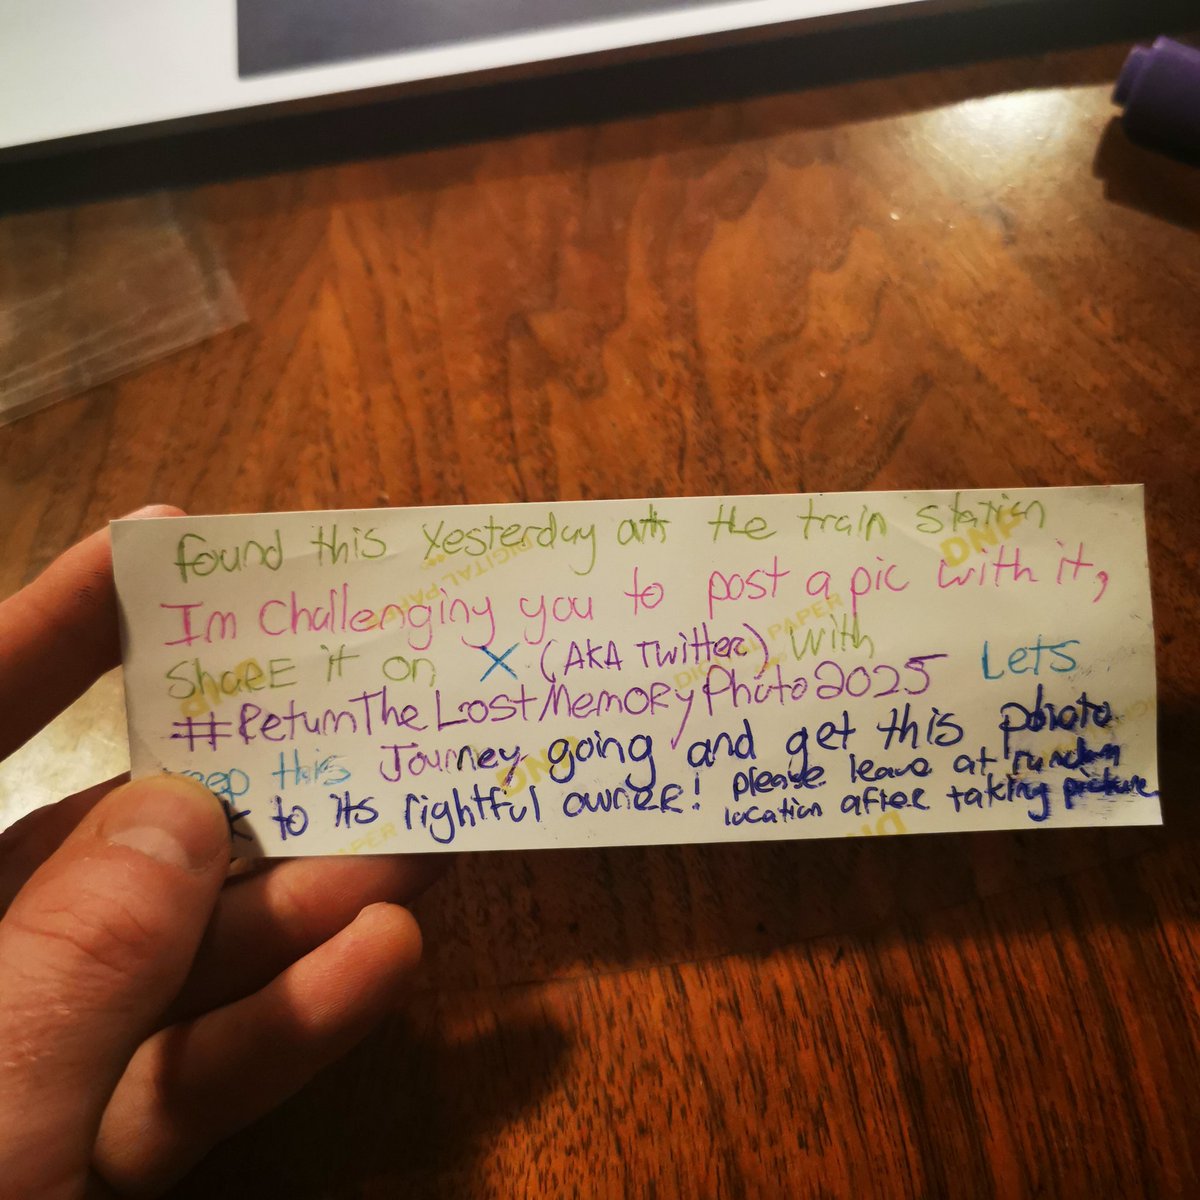 found this Yesterday at the train station
Im Challenging you to post a pic with it,
SharE it on X (AKA Twitter) with
#ReturnTheLostMemoryPhoto2025 Lets
eep this Journey going and get this photo
k to its rightful owner! please leave at
location after taking picture
DNP
DIGITAL PAPER
DNP
DIGITAL PAPER
DNP
PAPER
DNP